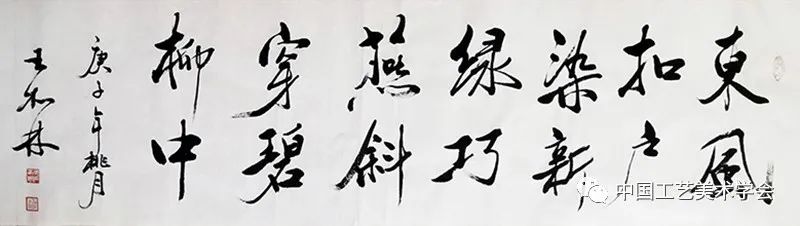 東風
扣户
染新
绿巧
燕斜
穿碧
柳中
庚子年桃月
王林
中国工艺美术学会